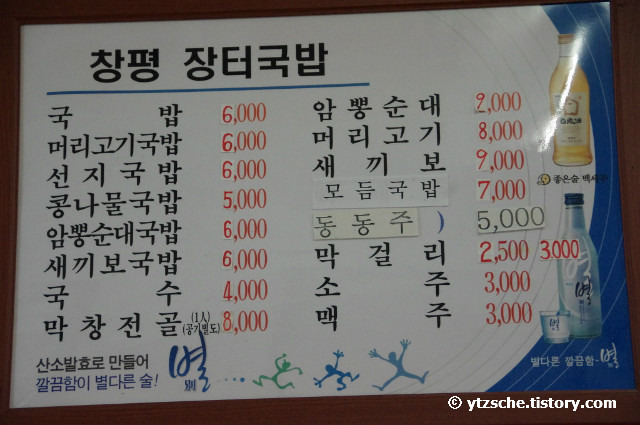 창평 장터국밥
국 밥 6,000
머리고기국밥 6,000
선지국밥 6,000
콩나물국밥 5,000
암뽕순대국밥 6,000
새끼보국밥 6,000
국 수 4,000
막창전골 (1人) (공기별도) 8,000
암뽕순대 9,000
머리고기 8,000
새끼보 9,000
모듬국밥 7,000
동동주 ) 5,000
막걸리 2,500 3,000
소 주 3,000
맥 주 3,000
산소발효로 만들어
깔끔함이 별다른 술!
별
別
좋은술 백세주
별
별다른 깔끔함-별
© ytzsche.tistory.com